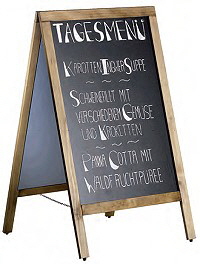 TAGESMENÜ
KAROTTEN INGWER SUPPE
SCHWEINEFILET MIT
VERSCHIEDENEM GEMÜSE
UND KROKETTEN
PANNA COTTA MIT
WALDFRUCHTPÜREE